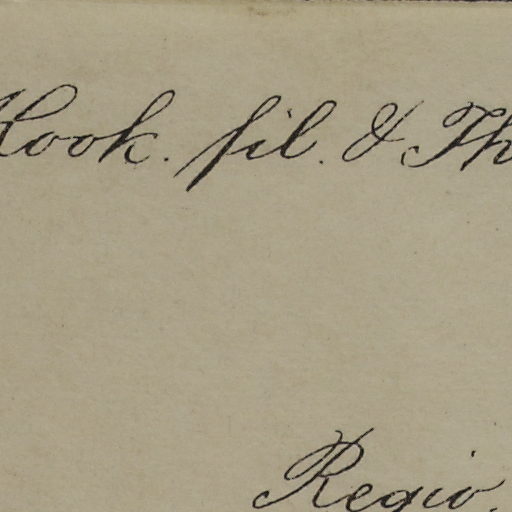 Hook. fil. & Th
Regio.